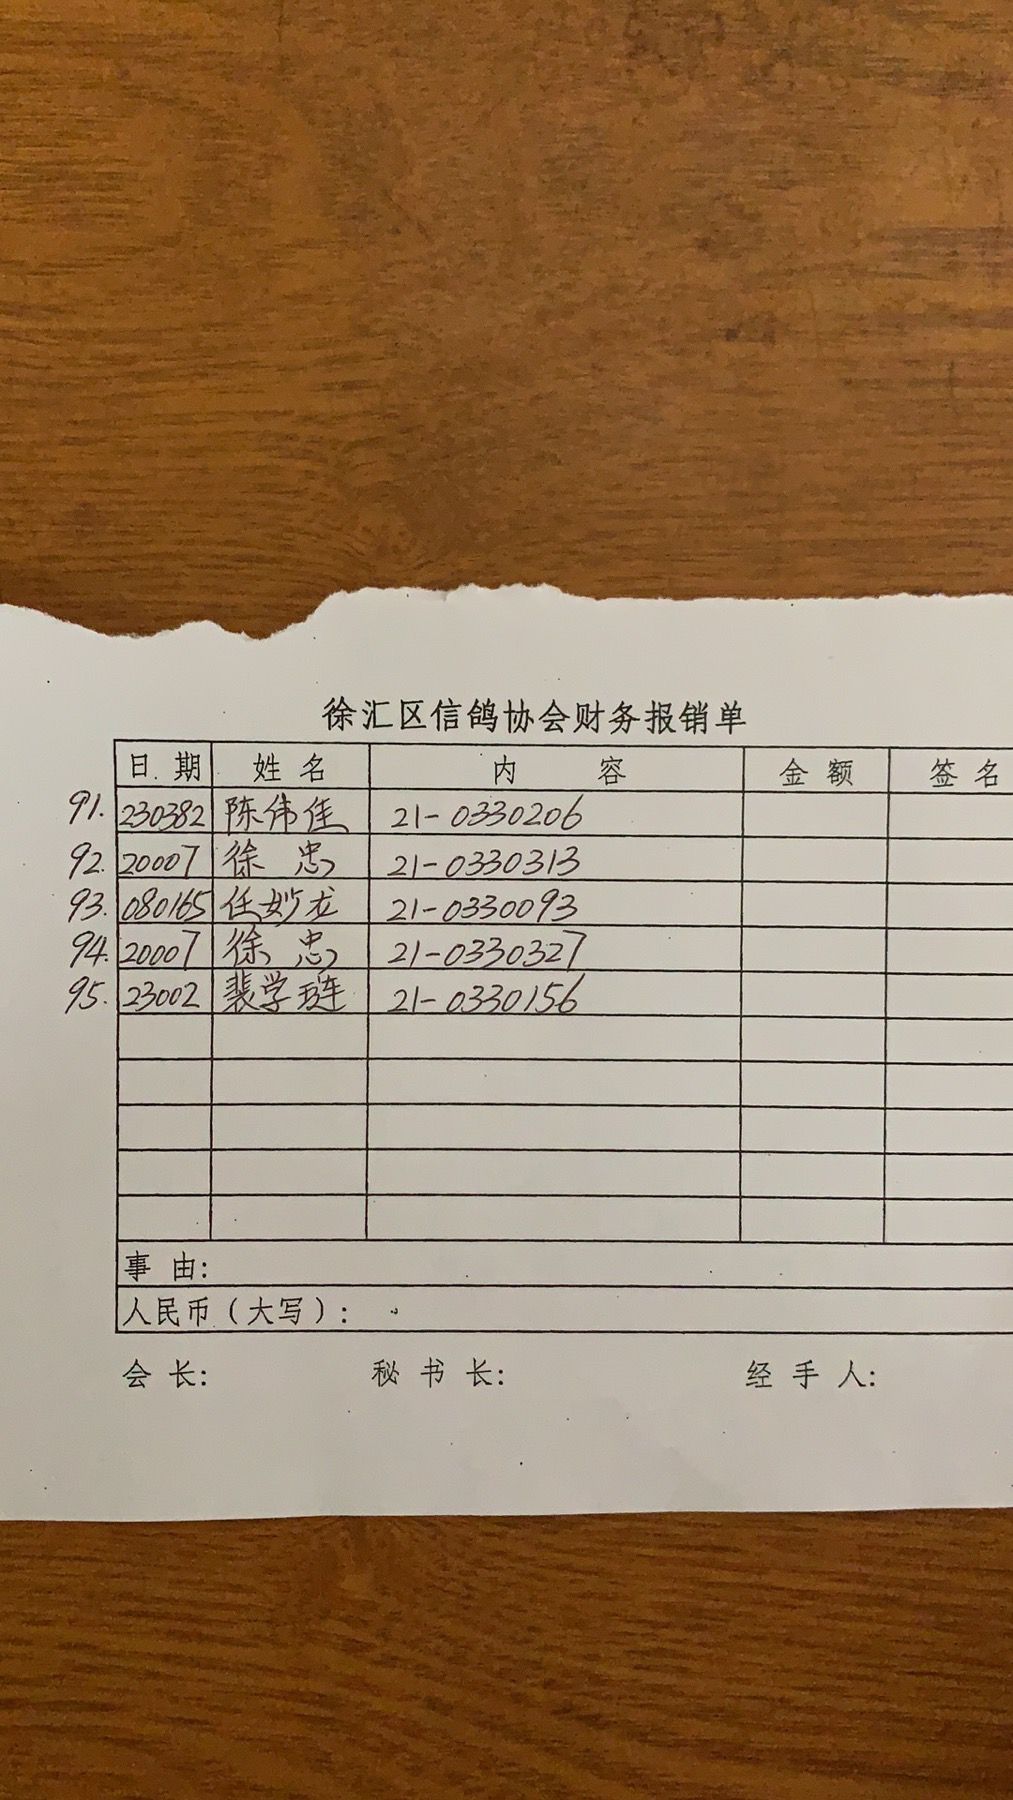 徐汇区信鸽协会财务报销单
日 期 姓 名 内 容 金 额 签 名
91. 230382 陈伟佳 21-0330206
92. 20007 徐 忠 21-0330313
93. 080165 任妙龙 21-0330093
94. 20007 徐 忠 21-0330327
95. 23002 裴学琏 21-0330156
事 由:
人民币（大写）:
会 长: 秘 书 长: 经 手 人: